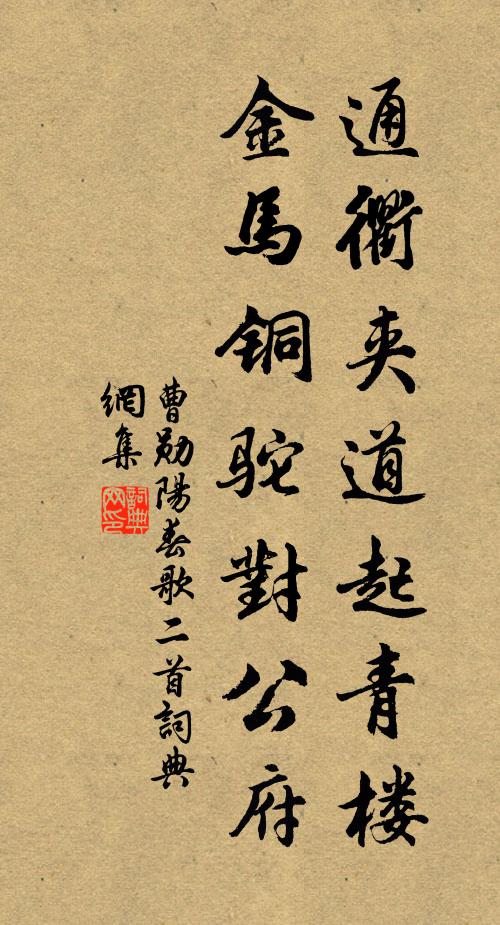 通衢夹道起青楼
金馬铜驼對公府
曹勛陽春歌二首詞典
網集
詞典
网印